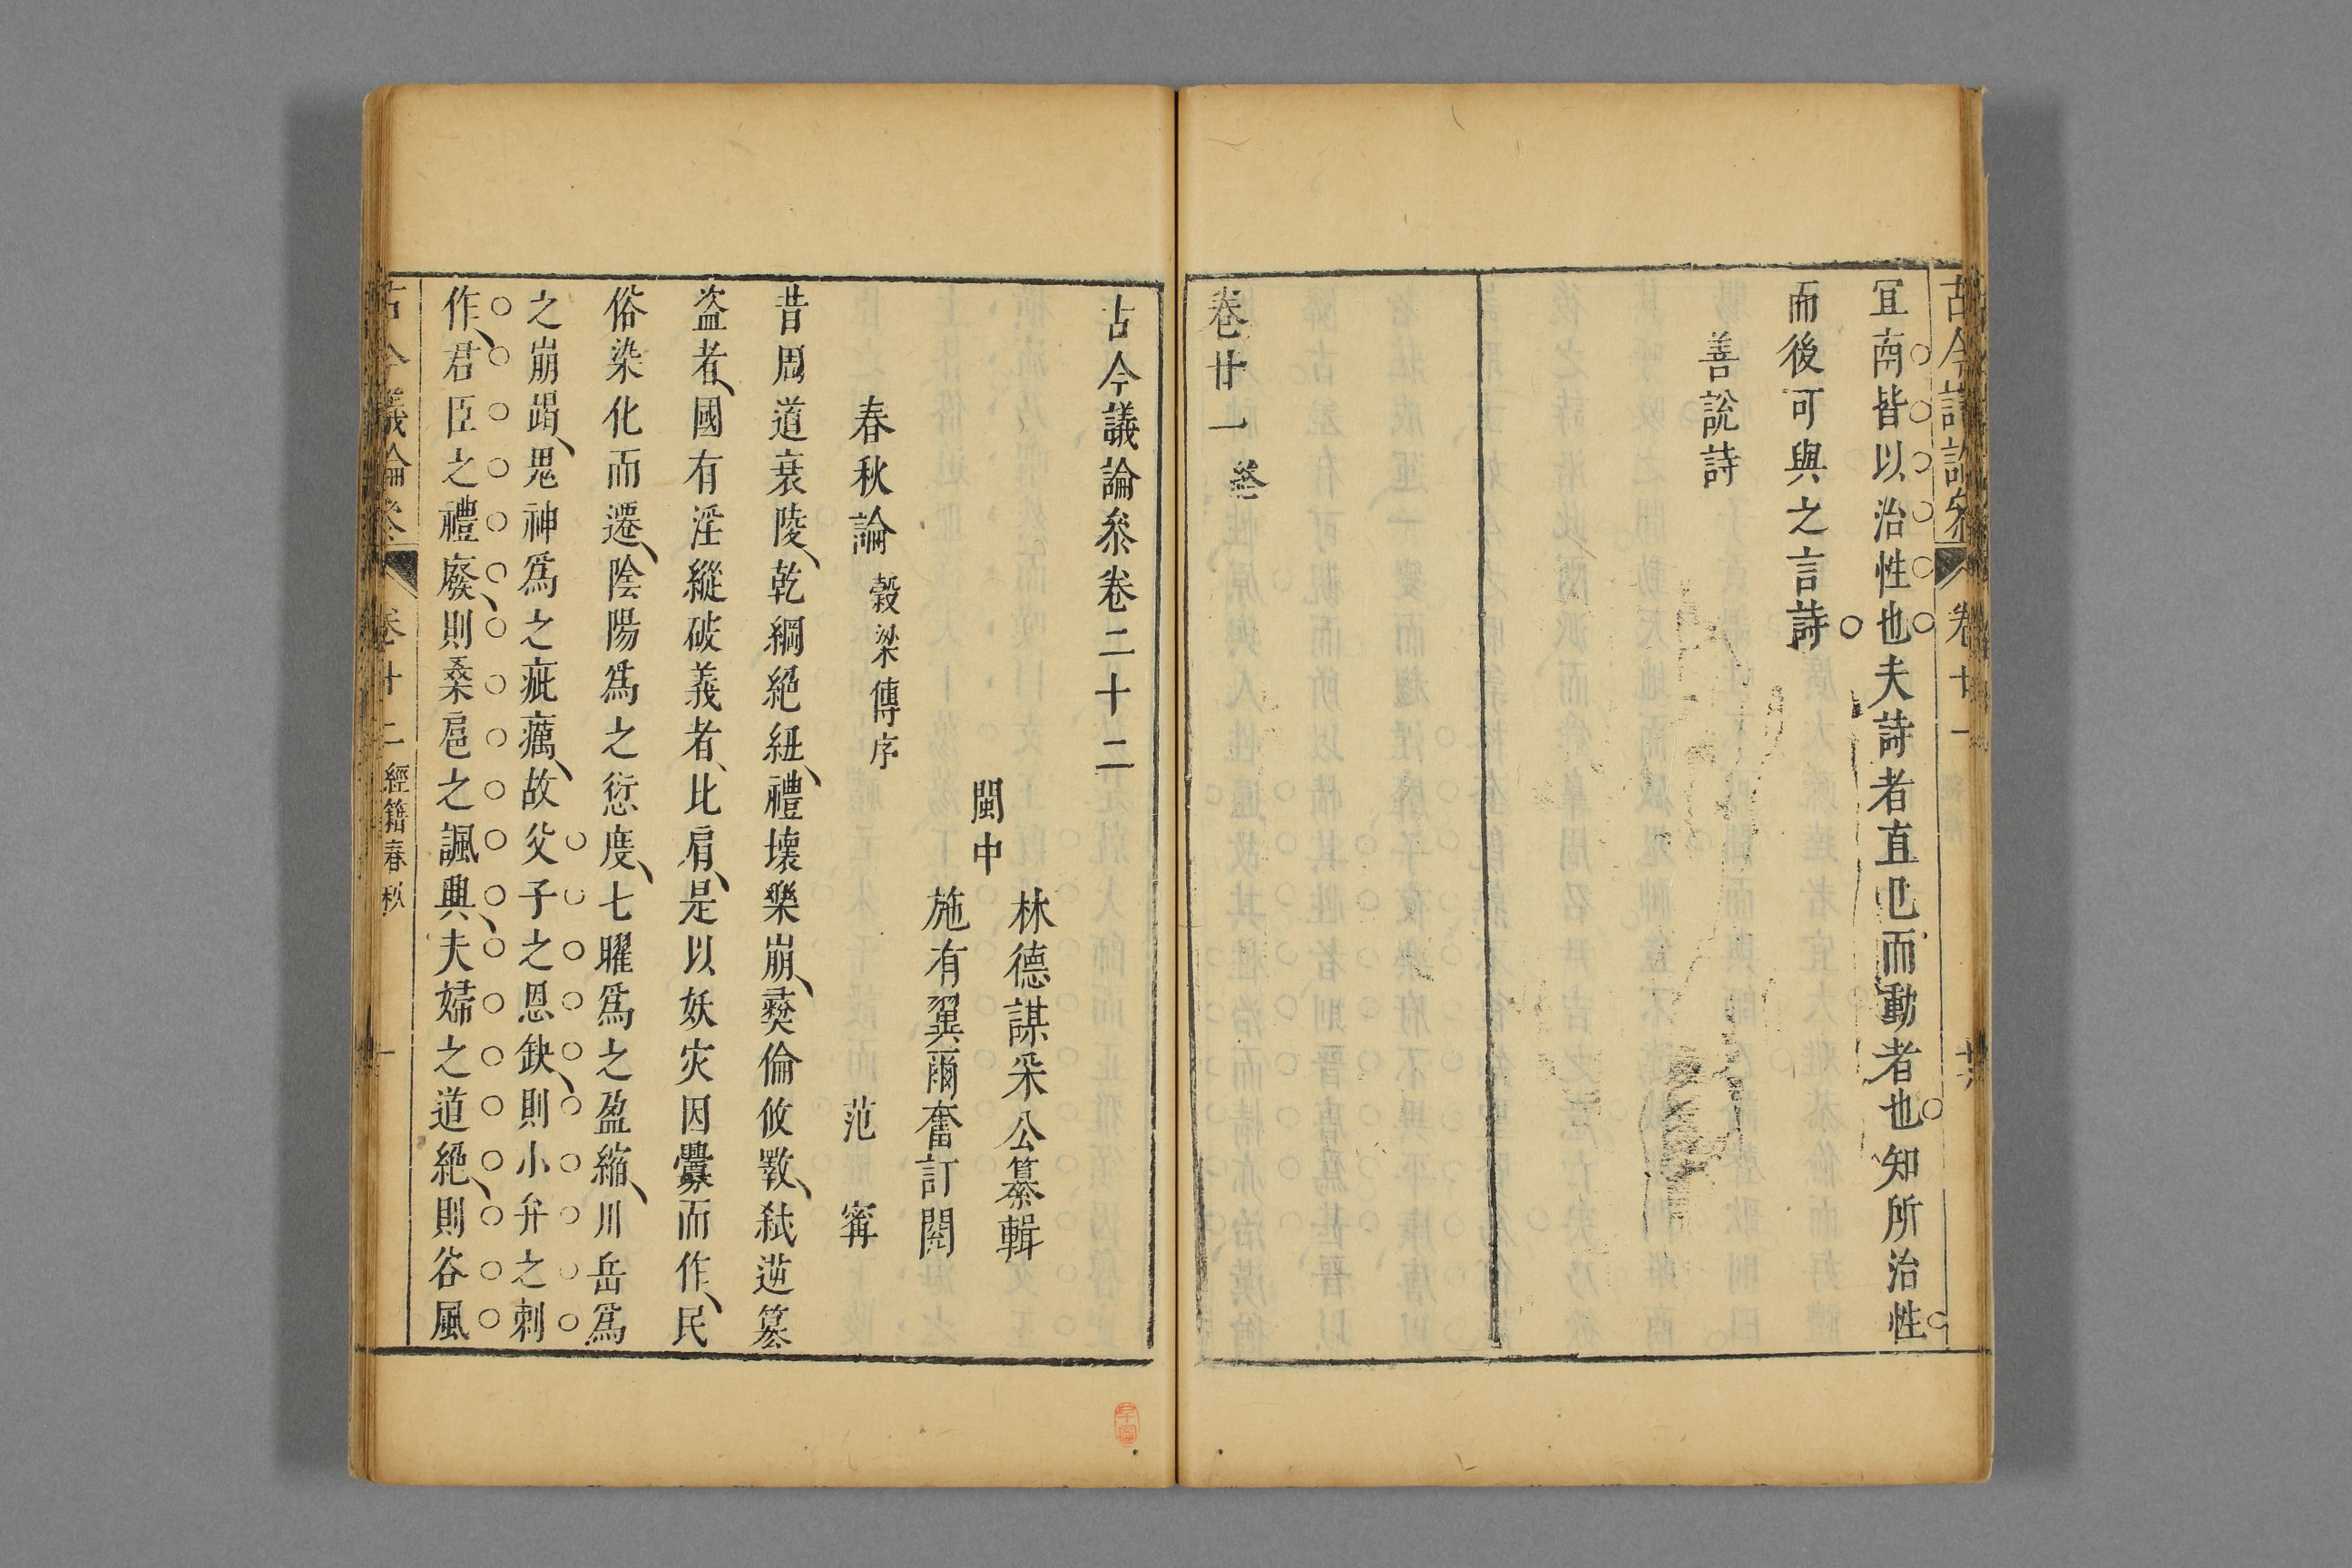 宜南皆以治性也夫詩者直也而動者也知所治性
而後可與之言詩
善說詩
卷廿一 終
古今議論叅卷二十二
閩中
林德謀采公纂輯
施有翼爾奮訂閱
春秋論 穀梁傳序 范甯
昔周道衰陵乾綱絕紐禮壞樂崩彝倫攸斁弒逆篡
盗者國有淫縱破義者比肩是以妖灾因釁而作民
俗染化而遷陰陽爲之愆度七曜爲之盈縮川岳爲
之崩竭鬼神爲之疵癘故父子之恩缺則小弁之刺
作君臣之禮廢則桑扈之諷興夫婦之道絕則谷風
古今議論叅 卷廿二 經籍春秋 一